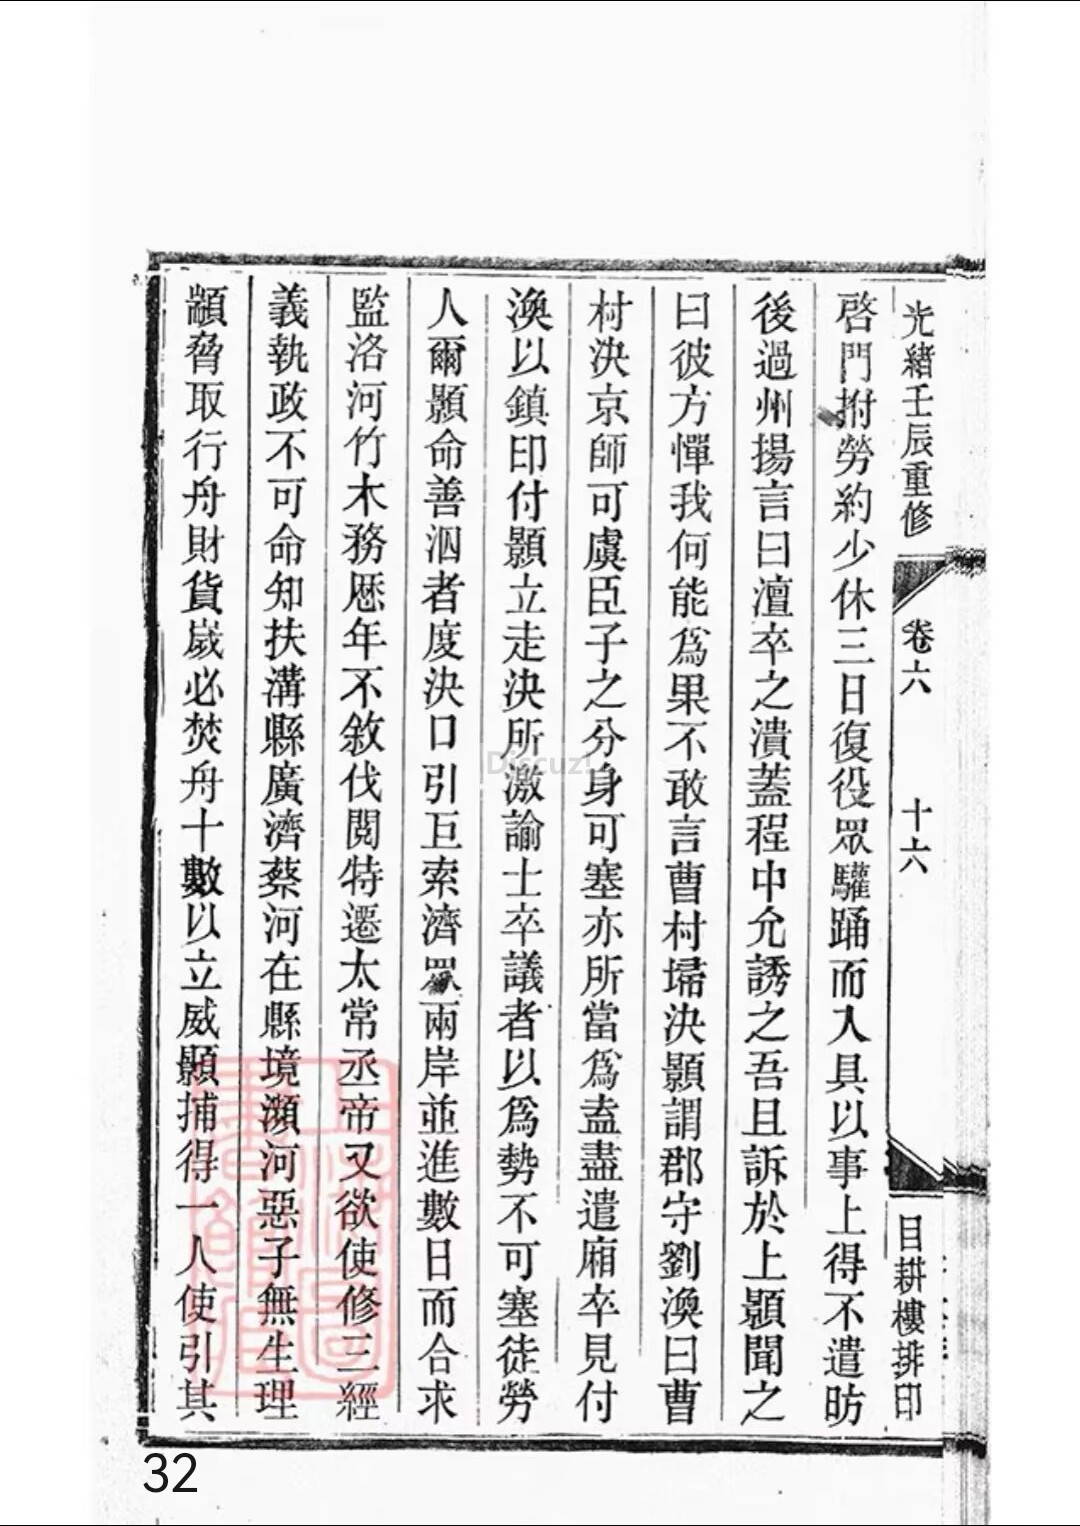 光緒壬辰重修 卷六 十六 目耕樓排印
啓門拊勞約少休三日復役眾驩踊而入具以事上得不遣昉
後過州揚言曰澶卒之潰蓋程中允誘之吾且訴於上顥聞之
曰彼方憚我何能爲果不敢言曹村埽決顥謂郡守劉渙曰曹
村決京師可虞臣子之分身可塞亦所當爲盍盡遣廂卒見付
渙以鎮印付顥立走決所激諭士卒議者以爲勢不可塞徒勞
人爾顥命善泅者度決口引巨索濟眾兩岸並進數日而合求
監洛河竹木務歷年不敘伐閱特遷太常丞帝又欲使修三經
義執政不可命知扶溝縣廣濟蔡河在縣境瀕河惡子無生理
顓脅取行舟財貨歲必焚舟十數以立威顥捕得一人使引其
Discuz!
上海圖書館藏
32